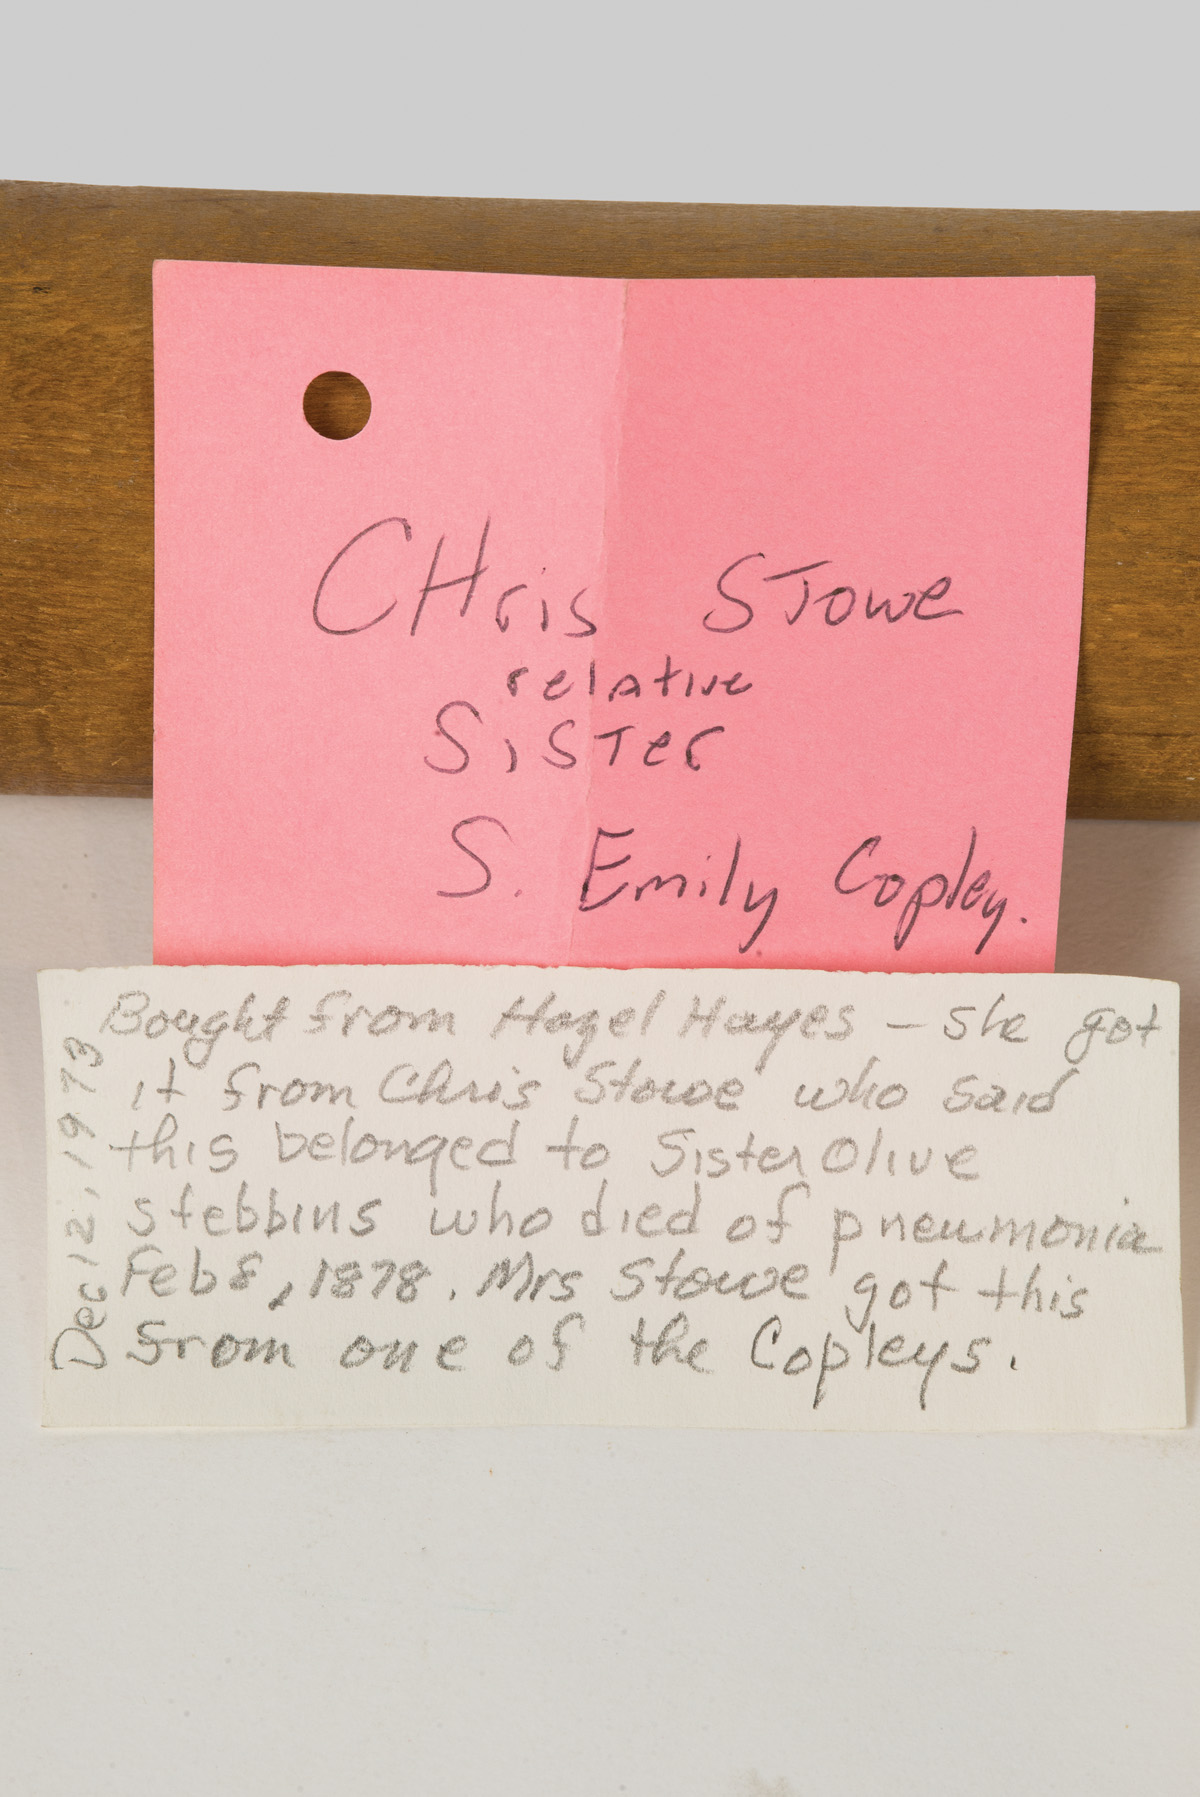 CHris STowe
relative
SiSTer
S. Emily Copley.
Bought from Hazel Hayes – she got
it from Chris Stowe who said
this belonged to Sister Olive
Stebbins who died of pneumonia
Feb 8, 1878. Mrs Stowe got this
from one of the Copleys.
Dec 12, 1973